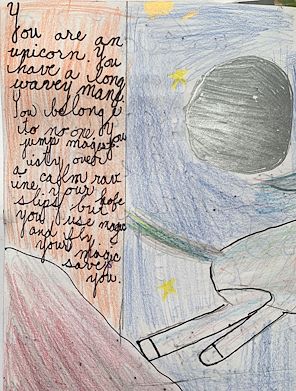 You are an
unicorn. You
have a long
wavey mane
You belong
to no one. You
jump majest-
usly over
a calm rav
ine. your hofe
slips but
you use magic
and fly
your magic
saves
you.